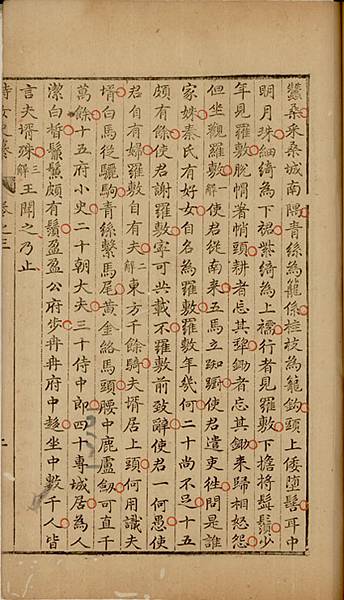 蠶桑采桑城南隅青絲為籠係桂枝為籠鉤頭上倭墮髻耳中
明月珠緗綺為下裙紫綺為上襦行者見羅敷下擔捋髭鬚少
年見羅敷脫帽著帩頭耕者忘其犂鋤者忘其鋤來歸相怒怨
但坐觀羅敷解使君從南來五馬立踟躕使君遣吏往問是誰
家姝秦氏有好女自名為羅敷羅敷年幾何二十尚不足十五
頗有餘使君謝羅敷寧可共載不羅敷前致辭使君一何愚使
君自有婦羅敷自有夫二解東方千餘騎夫壻居上頭何用識夫
壻白馬從驪駒青絲繫馬尾黃金絡馬頭腰中鹿盧劍可直千
萬餘十五府小史二十朝大夫三十侍中郎四十專城居為人
潔白皙鬑鬑頗有鬚盈盈公府步冉冉府中趨坐中數千人皆
言夫壻殊三解王聞之乃止